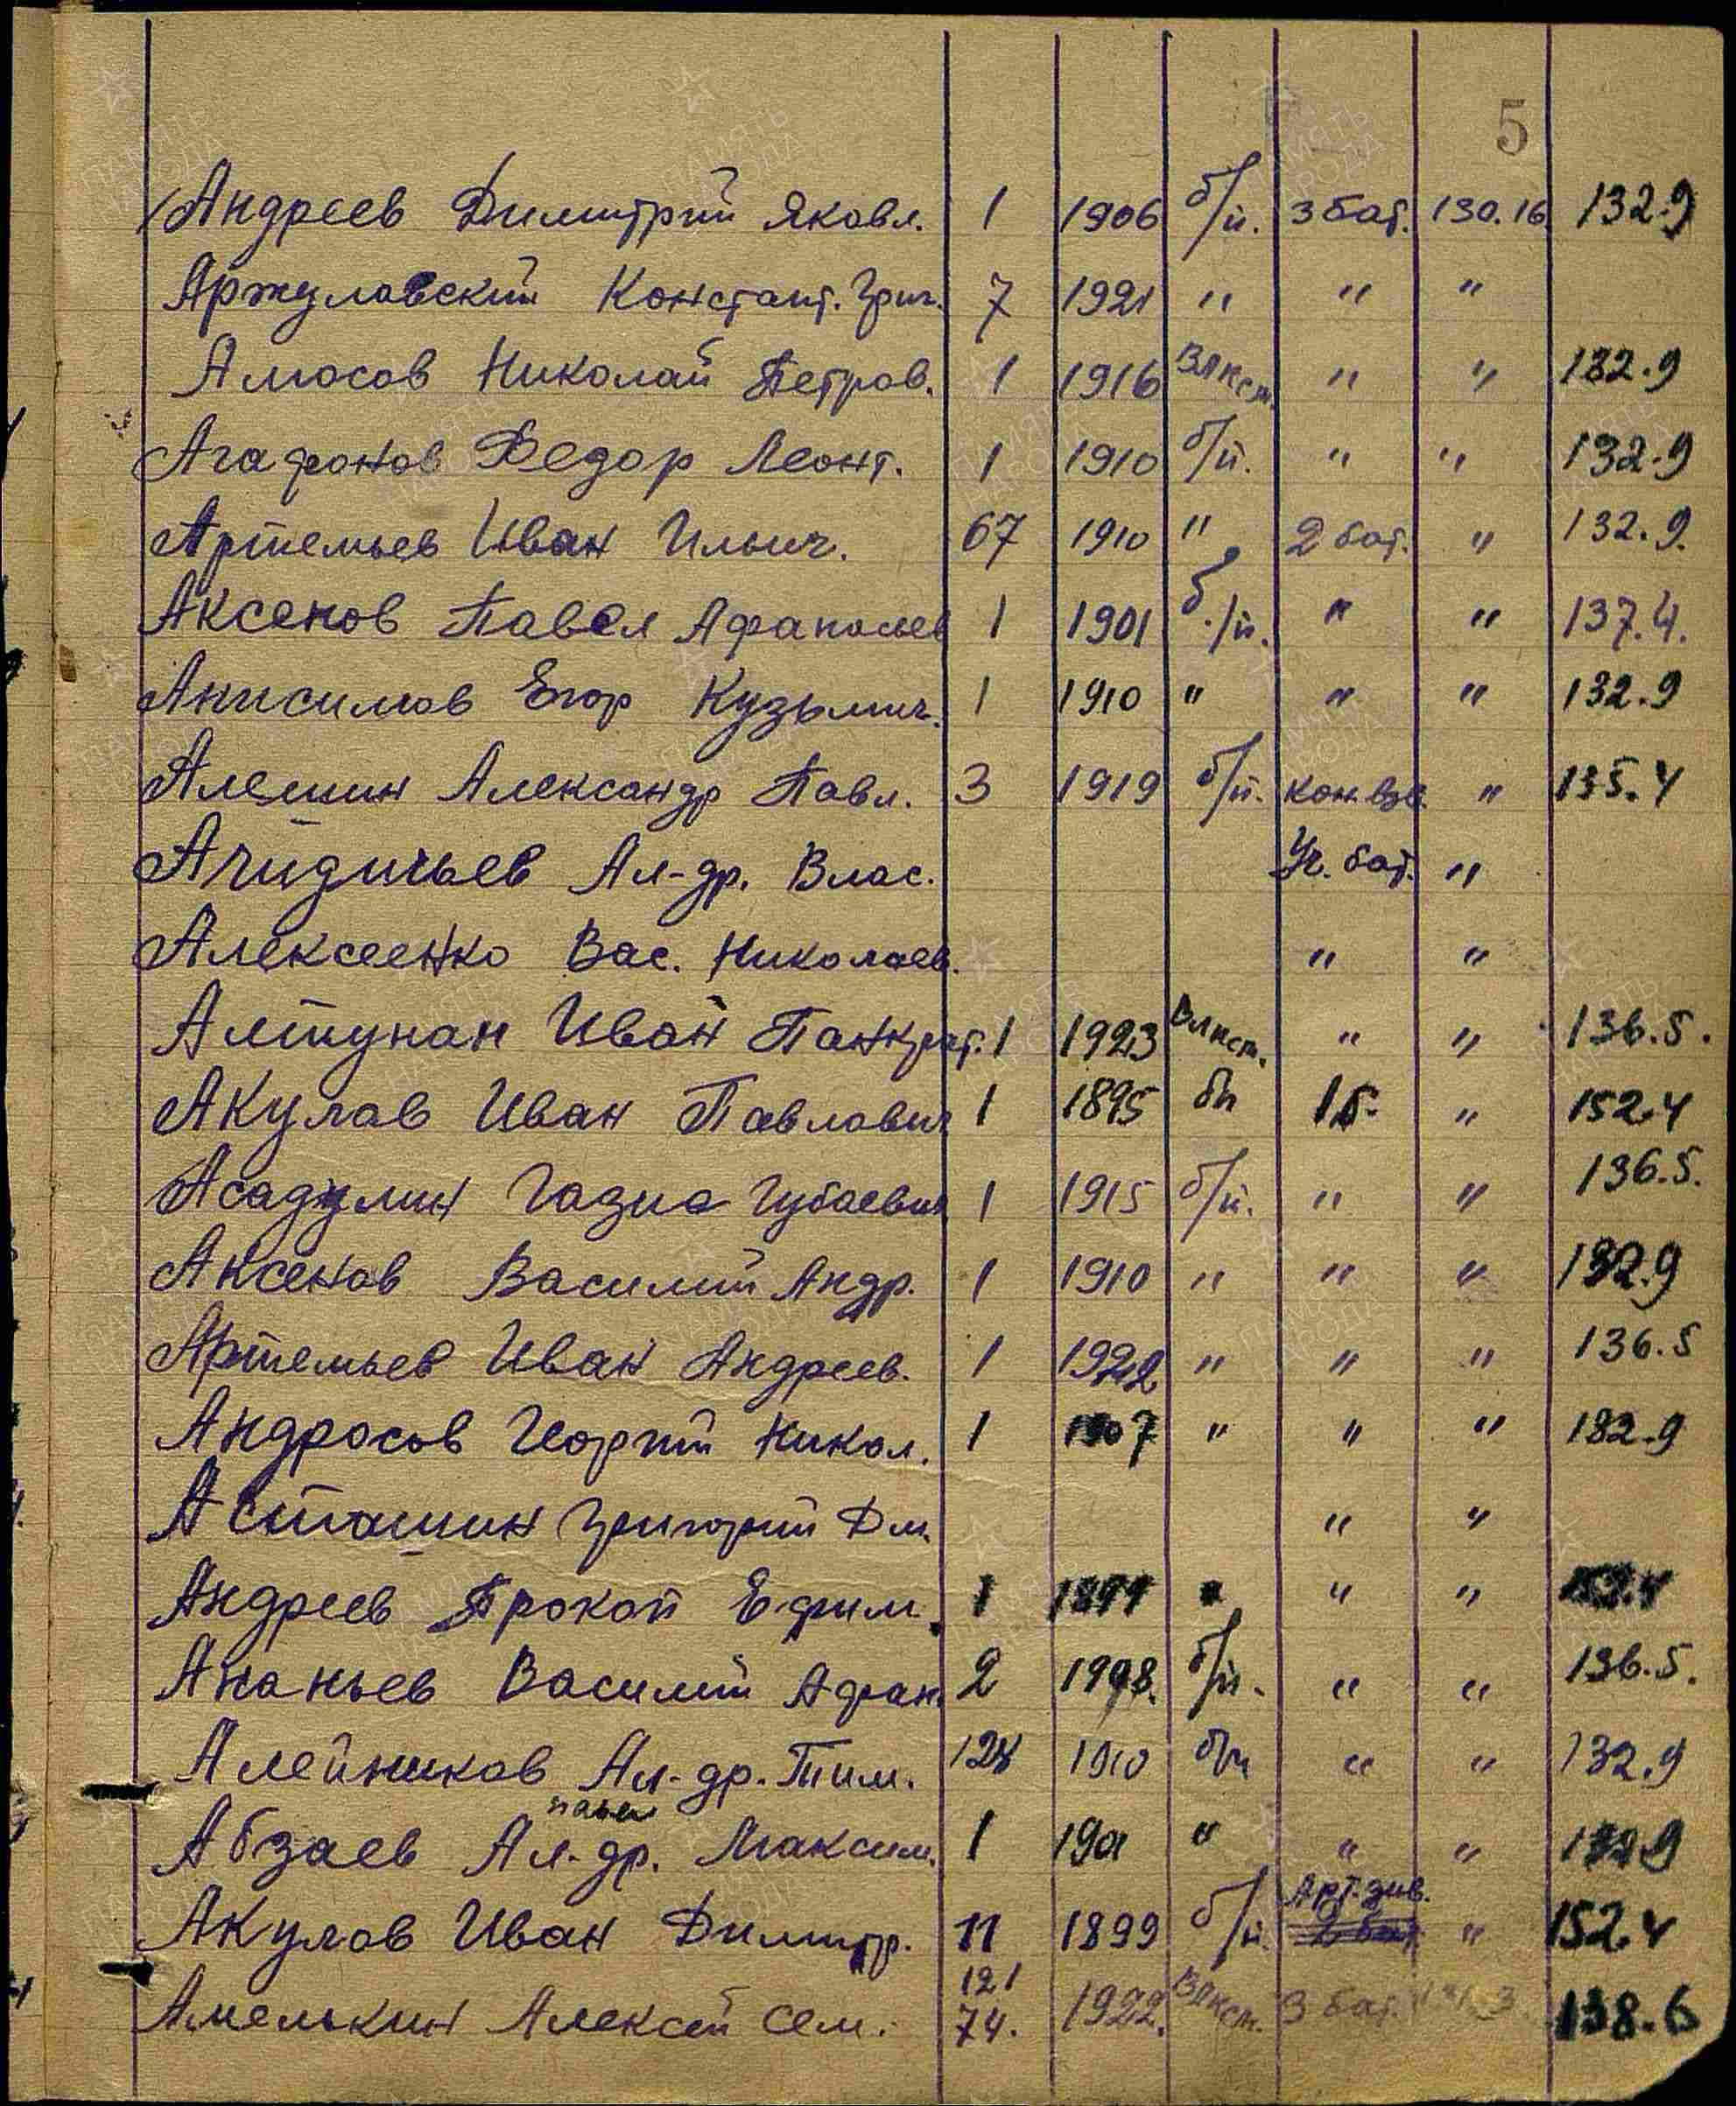 5
Андреев Димитрий Яковл. 1 1906 б/п. 3 бат. 130.16 132.9
Аржулавский Констант. Григ. 7 1921 " " "
Амосов Николай Петров. 1 1916 Влксм. " " 132.9
Агафонов Федор Леонт. 1 1910 б/п. " " 132.9
Артемьев Иван Ильич. 67 1910 " 2 бат. " 132.9.
Аксенов Павел Афанасьев 1 1901 б./п. " " 137.4.
Анисимов Егор Кузьмич. 1 1910 " " " 132.9
Алешин Александр Павл. 3 1919 б/п. кон. взв. " 135.4
Ал-др. Влас. Уч. бат. "
Алексеенко Вас. Николаев. " "
Алтунан Иван Панкрат. 1 1923 Влксм. " " 136.5.
Акулов Иван Павлович 1 1895 бп 1б. " 152.4
Асадулин Газиа Губаевич 1 1915 б/п. " " 136.5.
Аксенов Василий Андр. 1 1910 " " " 132.9
Артемьев Иван Андреев. 1 1922 " " " 136.5
Андросов Георгий Никол. 1 1907 " " " 132.9
Асташин Григорий Дм. " "
Андреев Прокоп Ефим. 1 " " "
Ананьев Василий Афан. 2 б/п. " " 136.5.
Алейников Ал-др. Тим. 124 1910 б/п " " 132.9
Абзаев Ал-др. Максим. 1 1901 " " "
Арт. див.
Акулов Иван Димитр. 11 1899 б/п. 2 бат. " 152.4
121
Амелькин Алексей Сем. 74. 1922. Влксм. 3 бат. 138.6